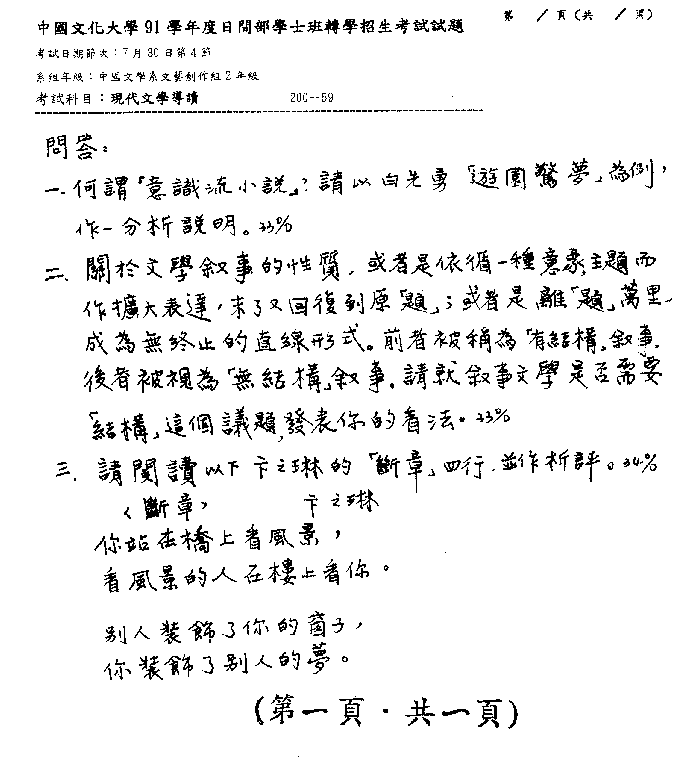 中國文化大學91學年度日間部學士班轉學招生考試試題 第 1 頁(共 1 頁)
考試日期節次:7月30日第4節
系組年級:中國文學系文藝創作組2年級
考試科目:現代文學導讀 200--59
問答:
一.何謂「意識流小說」?請以白先勇「遊園驚夢」為例,
作一分析說明。33%
二.關於文學敘事的性質,或者是依循一種意象主題而
作擴大表達,末了又回復到原「題」;或者是離「題」萬里,
成為無終止的直線形式。前者被稱為「有結構」敘事,
後者被視為「無結構」敘事。請就敘事文學是否需要
「結構」這個議題,發表你的看法。33%
三.請閱讀以下卞之琳的「斷章」四行,並作析評。34%
〈斷章〉 卞之琳
你站在橋上看風景,
看風景的人在樓上看你。
別人裝飾了你的窗子,
你裝飾了別人的夢。
(第一頁.共一頁)